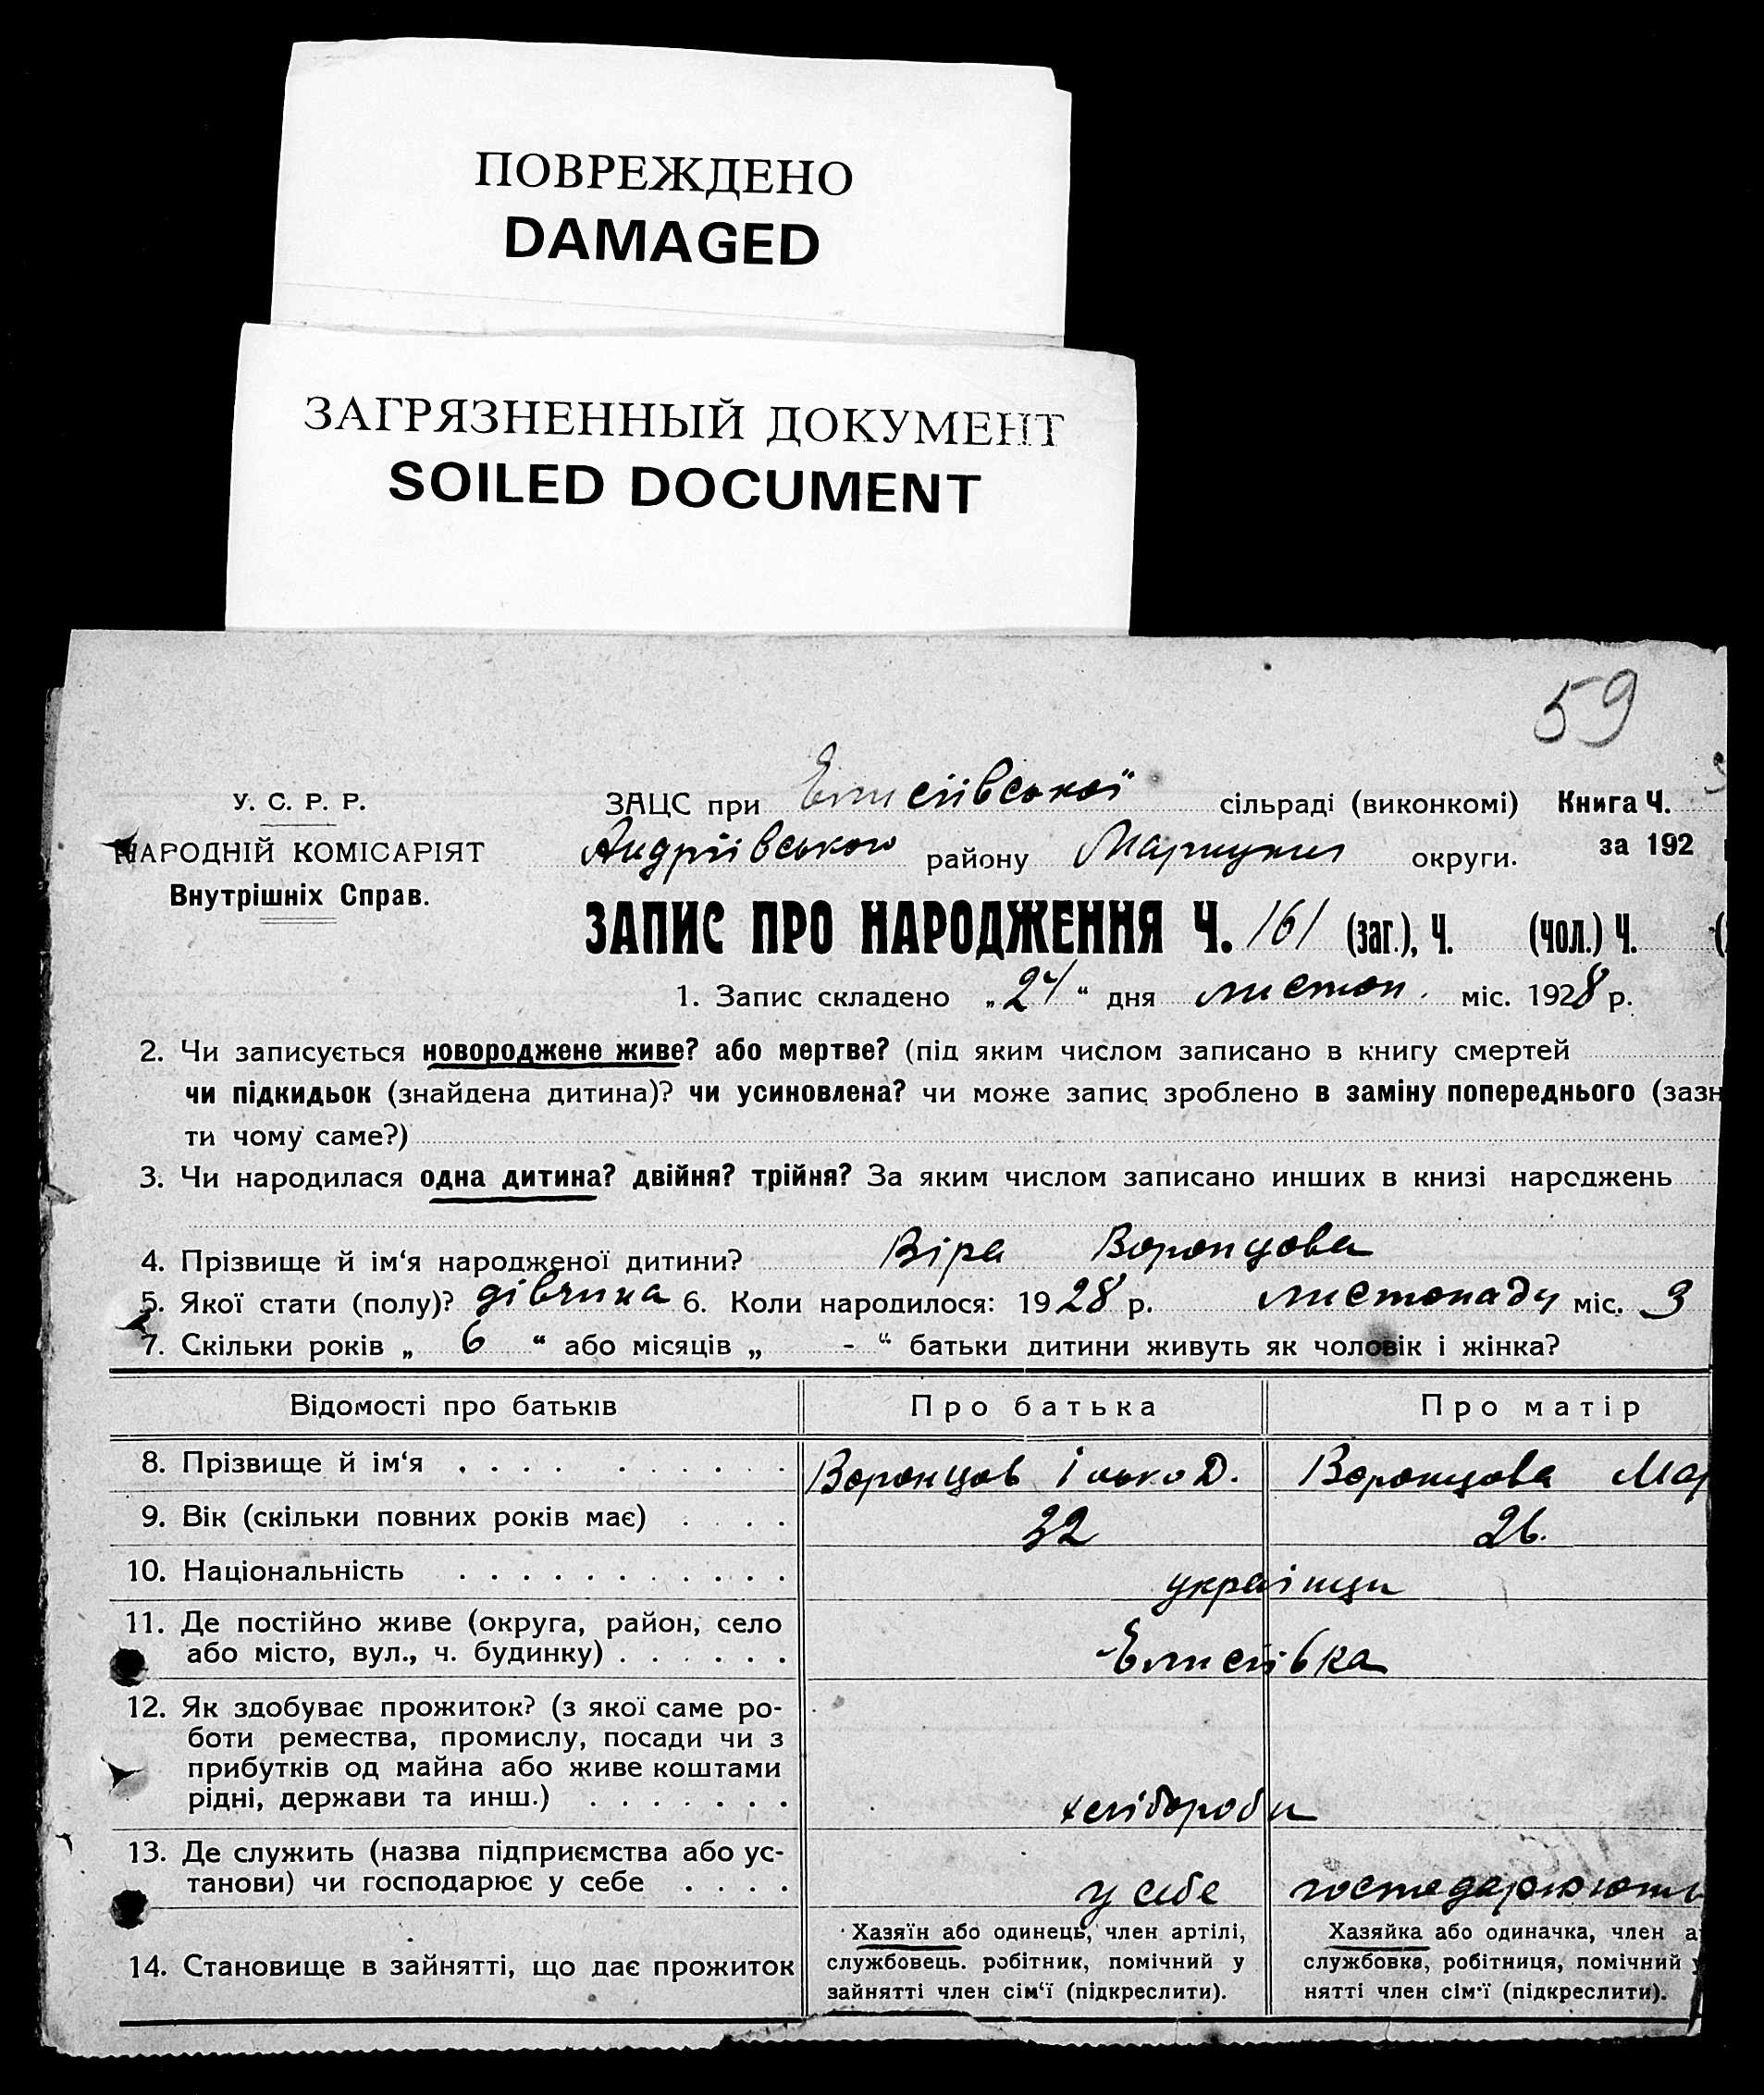 ПОВРЕЖДЕНО
DAMAGED
ЗАГРЯЗНЕННЫЙ ДОКУМЕНТ
SOILED DOCUMENT
59
У. С. Р. Р.
НАРОДНІЙ КОМІСАРІЯТ
Внутрішніх Справ.
ЗАЦС при Елисіївської сільраді (виконкомі) Книга Ч.
Андріївського району Маріупил округи. за 192
ЗАПИС ПРО НАРОДЖЕННЯ Ч. 161 (заг.), Ч. (чол.) Ч. (
1. Запис складено „24“ дня листоп. міс. 1928 р.
2. Чи записується новороджене живе? або мертве? (під яким числом записано в книгу смертей
чи підкидьок (знайдена дитина)? чи усиновлена? чи може запис зроблено в заміну попереднього (зазн
ти чому саме?)
3. Чи народилася одна дитина? двійня? трійня? За яким числом записано инших в книзі народжень
4. Прізвище й ім‘я народженої дитини? Віра Воронцова
5. Якої стати (полу)? дівчина 6. Коли народилося: 1928 р. листопаду міс. 3
7. Скільки років „ 6 “ або місяців „ - “ батьки дитини живуть як чоловік і жінка?
Відомості про батьків Про батька Про матір
8. Прізвище й ім‘я . . . . . . . . . . Воронцов Ілько Д. Воронцова Мар
9. Вік (скільки повних років має) . . . . 32 26.
10. Національність . . . . . . . . . . . українци
11. Де постійно живе (округа, район, село
або місто, вул., ч. будинку) . . . . . . Елисіівка
12. Як здобуває прожиток? (з якої саме ро-
боти ремества, промислу, посади чи з
прибутків од майна або живе коштами
рідні, держави та инш.) . . . . . . . хлібороби
13. Де служить (назва підприємства або ус-
танови) чи господарює у себе . . . . у себе господарюють
14. Становище в зайнятті, що дає прожиток
Хазяїн або одинець, член артілі,
службовець. робітник, помічний у
зайнятті член сім‘ї (підкреслити).
Хазяйка або одиначка, член а
службовка, робітниця, помічний у
нятті член сім‘ї (підкреслити).